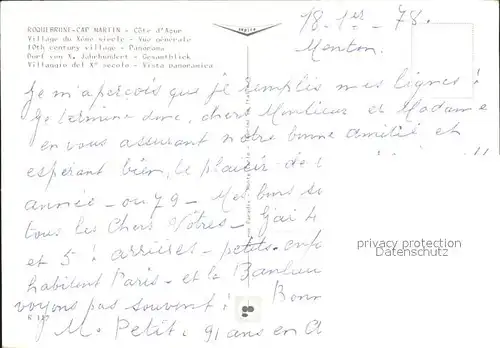 ROQUEBRUNE-CAP MARTIN - Côte d'Azur
Village du Xème siècle - Vue générale
10th century village - Panorama
Dorf von X. Jahrhundert - Gesamtblick
Villaggio del X° secolo - Vista panoramica
18-1er-78.
Menton.
Je m'aperçois que je remplis mes lignes !
Je termine donc, chers Monsieur et Madame
en vous assurant notre bonne amitié et
espérant bien, le plaisir de
année - ou 79 - Mes bons
tous les Chers Vôtres - J'ai 4
et 5 ! arrières-petits-enf
habitent Paris - et la Banlieu
voyons pas souvent ! Bonn
M. Petit. 91 ans en A
privacy protection
Datenschutz